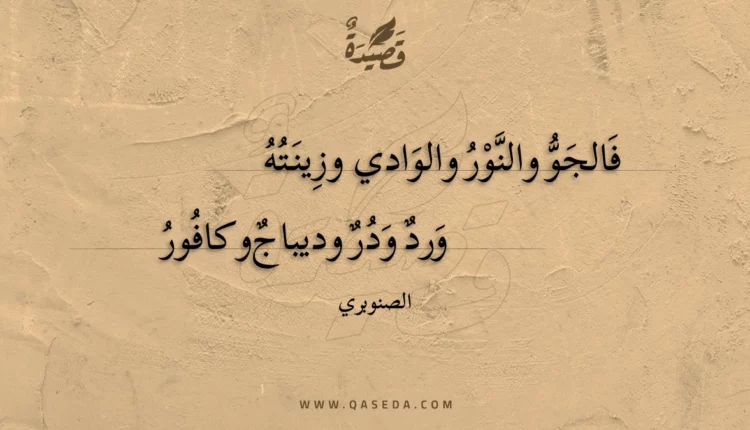 قَصِيْدَةٌ
فَالجَوُّ والنَّوْرُ والوَادي وزِينَتُهُ
وَردٌ وَدُرٌ وديباجٌ وكافُورُ
الصنوبري
WWW.QASEDA.COM